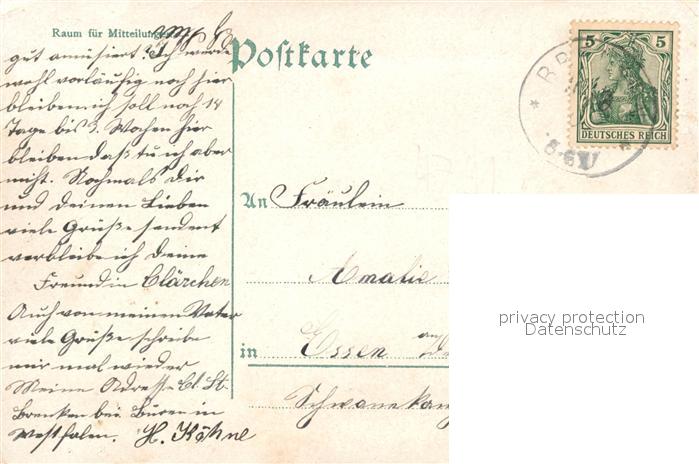 Raum für Mitteilungen
gut amüsiert? Ich werde
wohl vorläufig noch hier
bleiben ich soll noch 14
Tage bis 3. Wochen hier
bleiben daß tu ich aber
nicht. Nochmals Dir
und deinen Lieben
viele Grüße sendend
verbleibe ich Deine
Freundin Clärchen
Auch von meinen Vater
viele Grüße schreibe
mir mal wieder
Meine Adresse Cl. St.
Brenken bei Büren in
Westfalen. H. Köhne
Postkarte
5 5
DEUTSCHES REICH
An Fräulein
Amalie
in Essen
privacy protection
Datenschutz